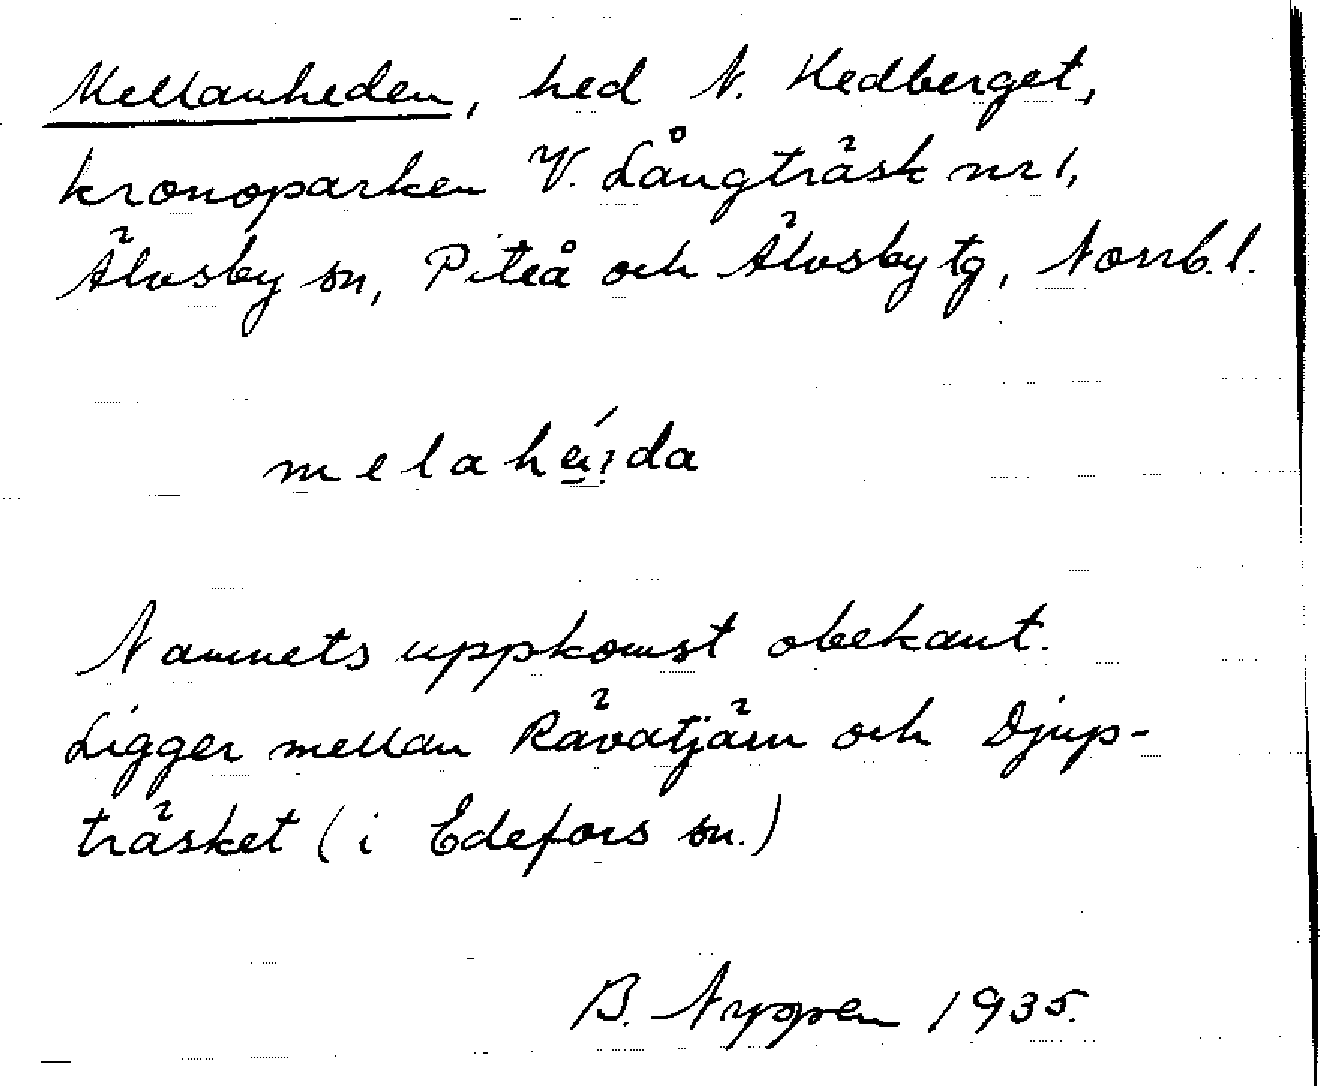 Mellanheden, hed N. Hedberget,
kronoparken V. Långträsk nr 1,
Älvsby sn, Piteå och Älvsby tg, Norrb. l.
melahéi̯da
Namnets uppkomst obekant.
Ligger mellan Rävatjärn och Djup-
träsket (i Edefors sn.)
B. Nygren 1935.